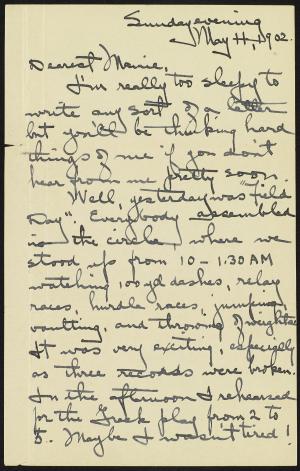 Sunday evening
May 11, 1902.
Dearest Mamie,
I'm really too sleepy to
write any sort of a letter
but you'll be thinking hard
things of me if you don't
hear from me pretty soon.
Well, yesterday was "Field
Day". Everybody assembled
in the circle, where we
stood up from 10 - 1:30 AM
watching 100 yd dashes, relay
races, hurdle races, jumping,
vaulting, and throwing of weights.
It was very exciting, especially
as three records were broken.
In the afternoon I rehearsed
for the Greek play from 2 to
5. Maybe I wasn't tired!